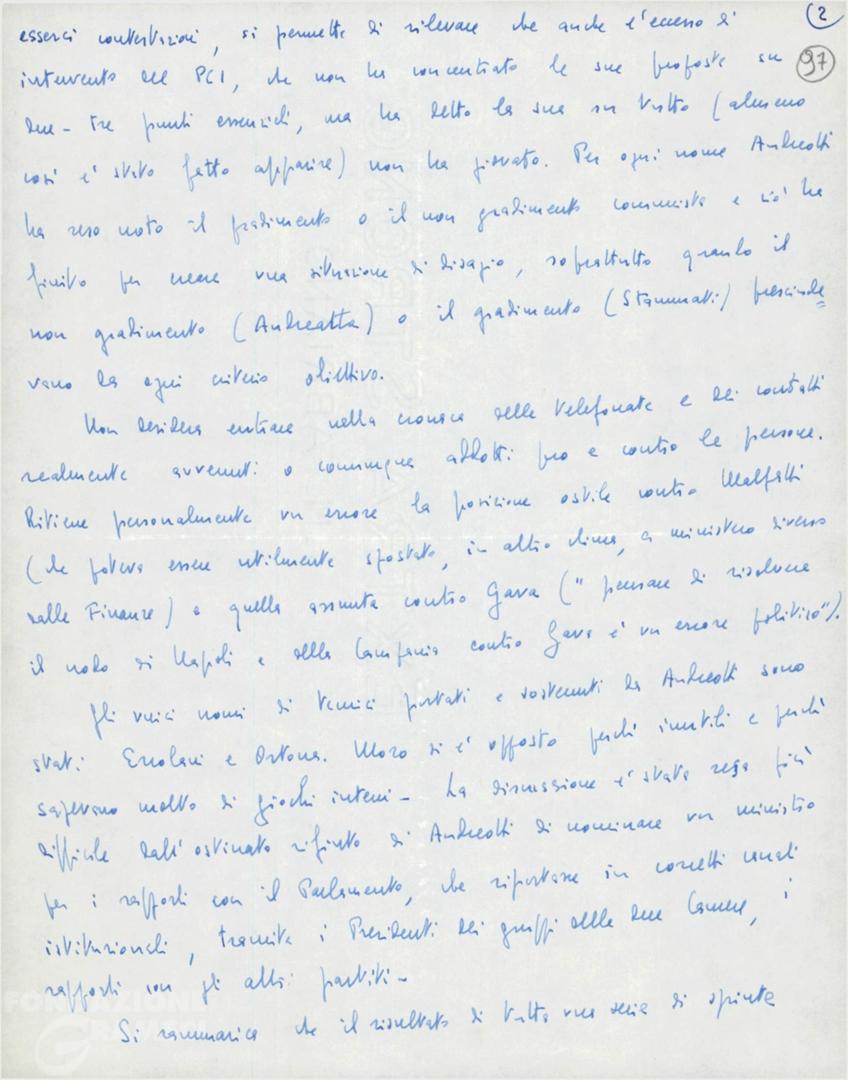 (2
esserci contestazioni, si permette di rilevare che anche l'eccesso di
97
intervento del PCI, che non ha concentrato le sue proposte su
due - tre punti essenziali, ma ha detto la sua su tutto (almeno
così è stato fatto apparire) non ha giovato. Per ogni nome Andreotti
ha reso noto il gradimento o il non gradimento comunista e ciò ha
finito per creare una situazione di disagio, soprattutto quando il
non gradimento (Andreatta) o il gradimento (Stammati) prescinde=
vano da ogni criterio obiettivo.
Non desidera entrare nella cronaca delle telefonate e dei contatti
realmente avvenuti o comunque addotti pro e contro le persone.
Ritiene personalmente un errore la posizione ostile contro Malfatti
(che poteva essere utilmente spostato, in altro clima, a ministero diverso
dalle Finanze) e quella assunta contro Gava ("pensare di risolvere
il nodo di Napoli e della Campania contro Gava è un errore politico").
Gli unici nomi di tecnici portati e sostenuti da Andreotti sono
stati Ercolani e Ortona. Moro si è opposto perché inutili e perché
sapevano molto di giochi interni - La discussione è stata resa più
difficile dall'ostinato rifiuto di Andreotti di nominare un ministro
per i rapporti con il Parlamento, che riportasse in corretti canali
istituzionali, tramite i Presidenti dei gruppi delle due Camere, i
rapporti con gli altri partiti -
Si rammarica che il risultato di tutta una serie di spinte
FONDAZIONE